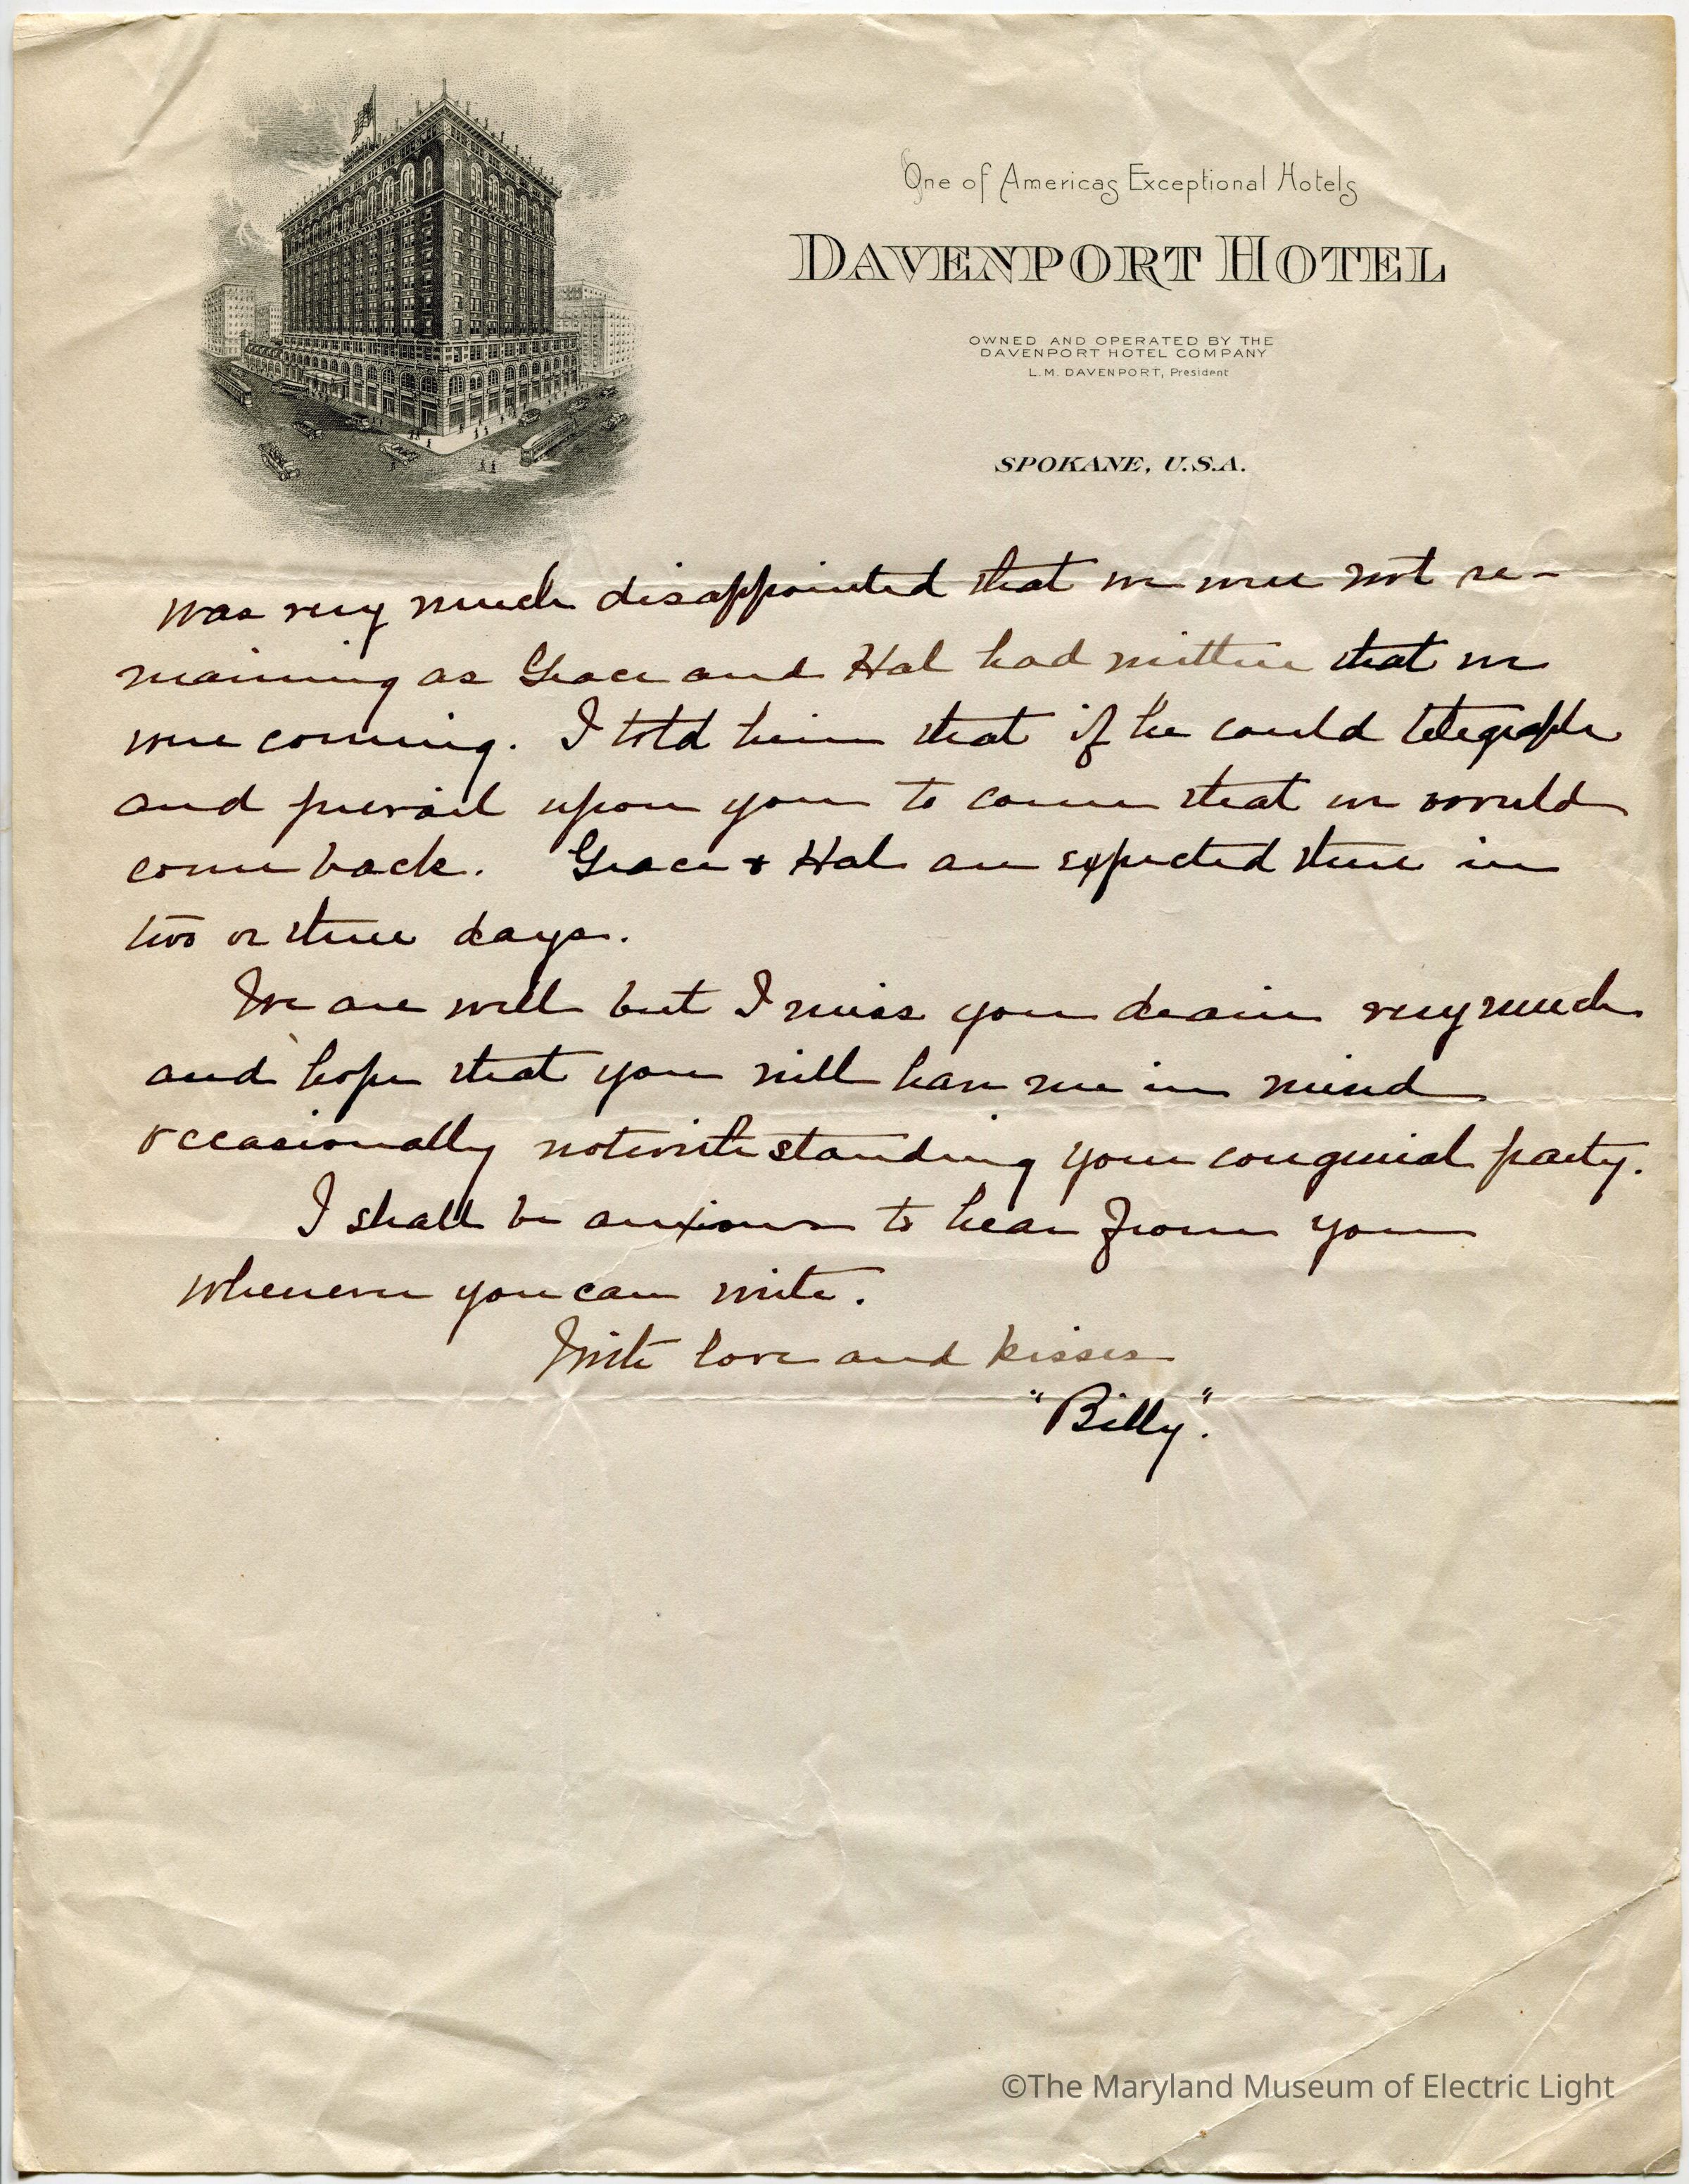 One of Americas Exceptional Hotels
DAVENPORT HOTEL
OWNED AND OPERATED BY THE
DAVENPORT HOTEL COMPANY
L.M. DAVENPORT, President
SPOKANE, U.S.A.
was very much disappointed that we were not re-
maining as Grace and Hal had written that we
were coming. I told him that if he could telegraph
and prevail upon you to come that we would
come back. Grace + Hal are expected there in
two or three days.
We are well but I miss you dearie very much
and hope that you will have me in mind
occasionally notwithstanding your congenial party.
I shall be anxious to hear from you
whenever you can write.
With love and kisses
"Billy".
©The Maryland Museum of Electric Light